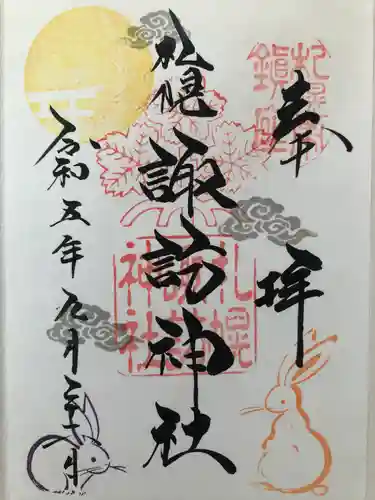 奉拝
札幌諏訪神社
令和五年九月二十九日
札幌諏訪神社